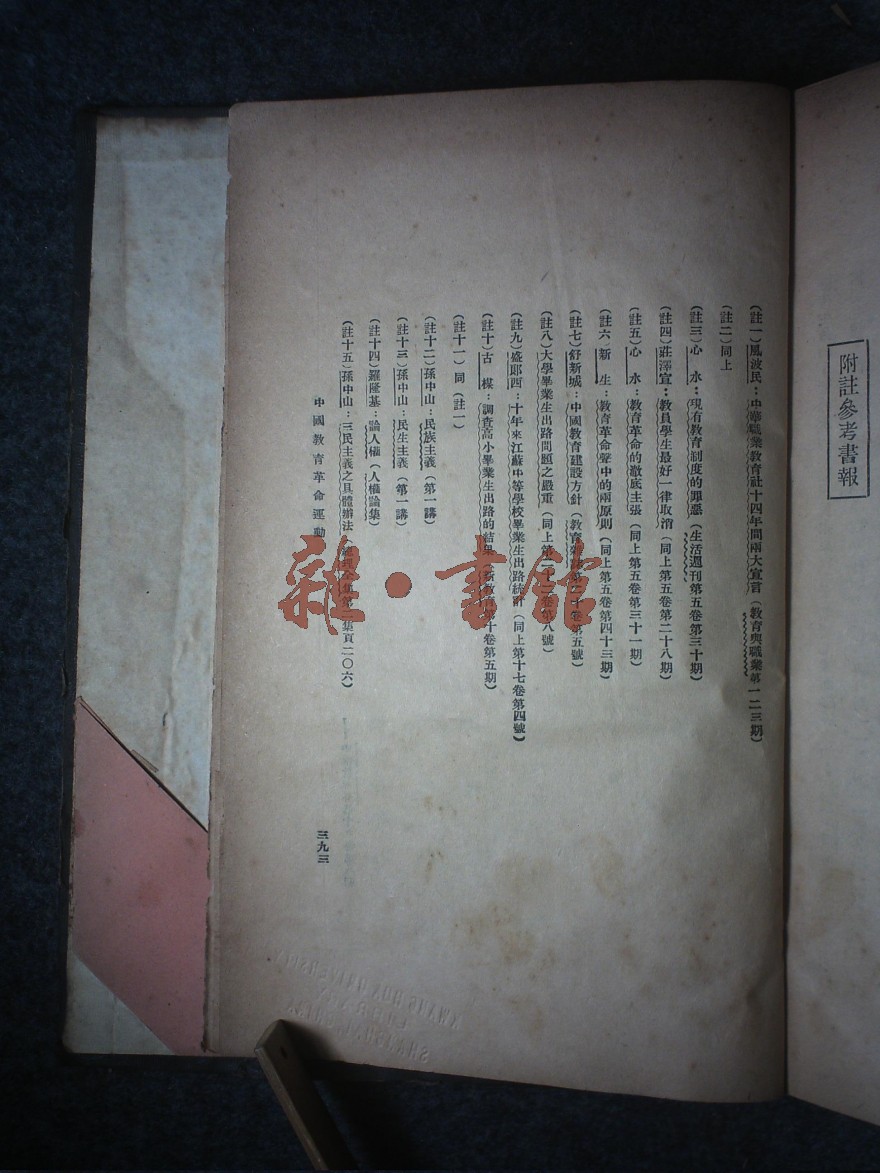 附註參考書報
(註一)風波民：中華職業教育社十四年間兩大宣言(教育與職業第一二三期)
(註二)同上
(註三)心水：現有教育制度的罪惡(生活週刊第五卷第三十期)
(註四)莊澤宣：教員學生最好一律取消(同上第五卷第二十八期)
(註五)心水：教育革命的澈底主張(同上第五卷第三十一期)
(註六)新生：教育革命聲中的兩原則(同上第五卷第四十三期)
(註七)舒新城：中國教育建設方針(教育雜誌第二十卷第五號)
(註八)大學畢業生出路問題之嚴重(同上第二十二卷第八號)
(註九)盛郎西：十年來江蘇中等學校畢業生出路統計(同上第十七卷第四號)
(註十)古楳：調查高小畢業生出路的結果(新教育第十卷第五期)
(註十一)同(註一)
(註十二)孫中山：民族主義(第一講)
(註十三)孫中山：民生主義(第一講)
(註十四)羅隆基：論人權(人權論集)
(註十五)孫中山：三民主義之具體辦法(總理全集第一集頁二〇六)
中國教育革命運動
三九三
雜·書館
KWANG HUA UNIVERSITY
LIBRARY
SHANGHAI, CHINA